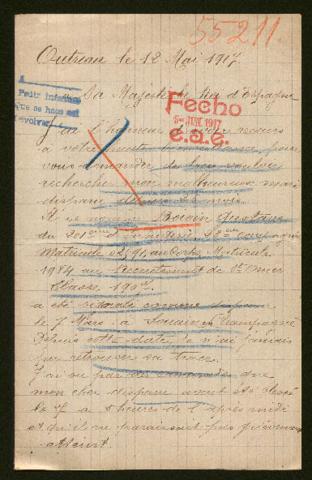 55211
Outreau le 12 Mai 1917
Sa Majesté le Roi d'Espagne
Pedir informes
que se haga est
devolver
Fecho
JUNE 1917
c.a.e.
J'ai l'honneur d'avoir recours
à votre haute bienveillance pour
vous demander de bien vouloir
rechercher mon malheureux mari
disparu depuis
Il se nomme Gustave
du
Matricule au Corps Matricule
1974 au Recrutement de St Omer
Classe 1907
a été comme disparu
le 7 Mars à Souain en Champagne
Depuis cette date je n'ai jamais
pu retrouver sa trace.
J'ai su par des camarades que
mon cher disparu avait été
le 7 à heures de l'après midi
et qu'il ne paraissait pas
atteint.